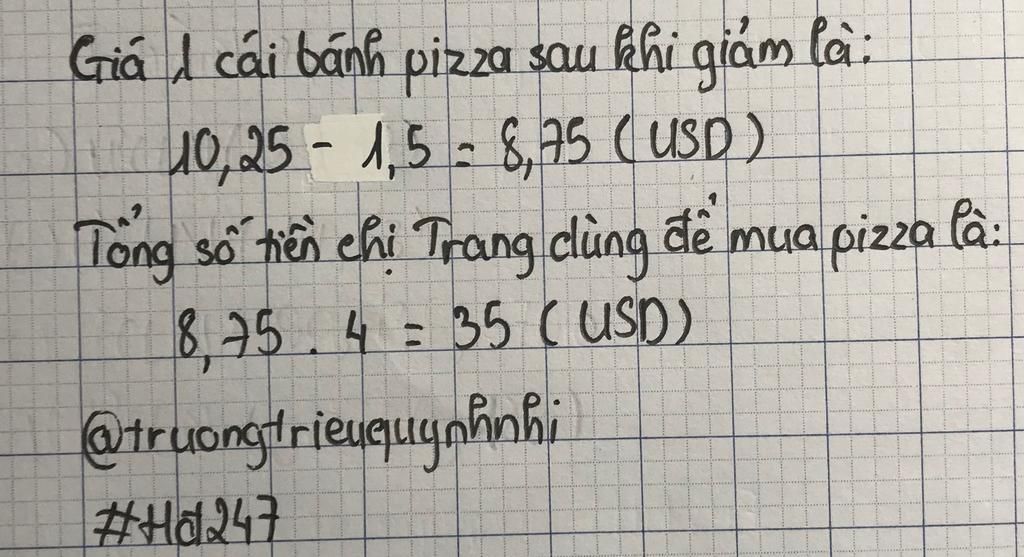 Giá 1 cái bánh pizza sau khi giảm là:
10,25 - 1,5 = 8,75 (USD)
Tổng số tiền chị Trang dùng để mua pizza là:
8,75 . 4 = 35 (USD)
@truongtrieuquynhnhi
#Hd247